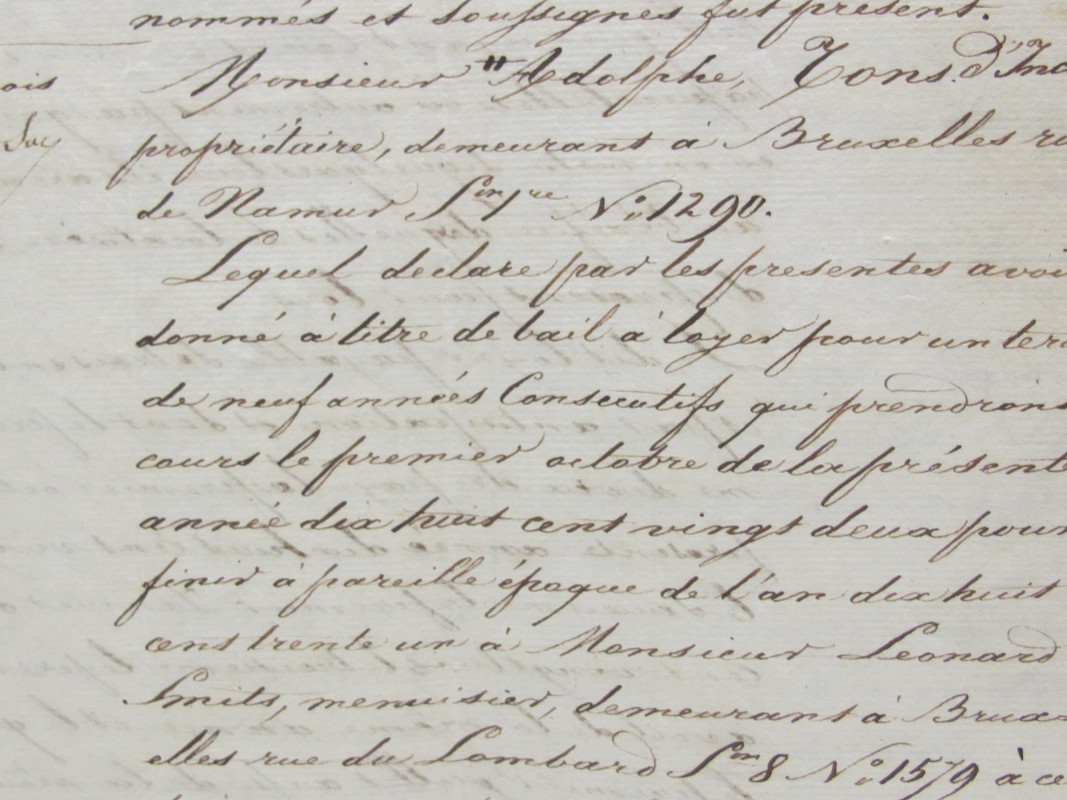 nommés et soussignes fut present.
ois Monsieur "Adolphe, Tons. d'Inc
propriétaire, demeurant à Bruxelles ru
de Namur Son 1re No 1290.
Lequel declare par les presentes avoi
donné à titre de bail à loyer pour un ter
de neuf années Consecutifs qui prendrons
cours le premier octobre de la présent
année dix huit cent vingt deux pour
finir à pareille époque de l'an dix huit
cent trente un à Monsieur Leonard
Smits, menuisier, demeurant à Brux=
elles rue du Lombard Son 8 No 1579 à ce